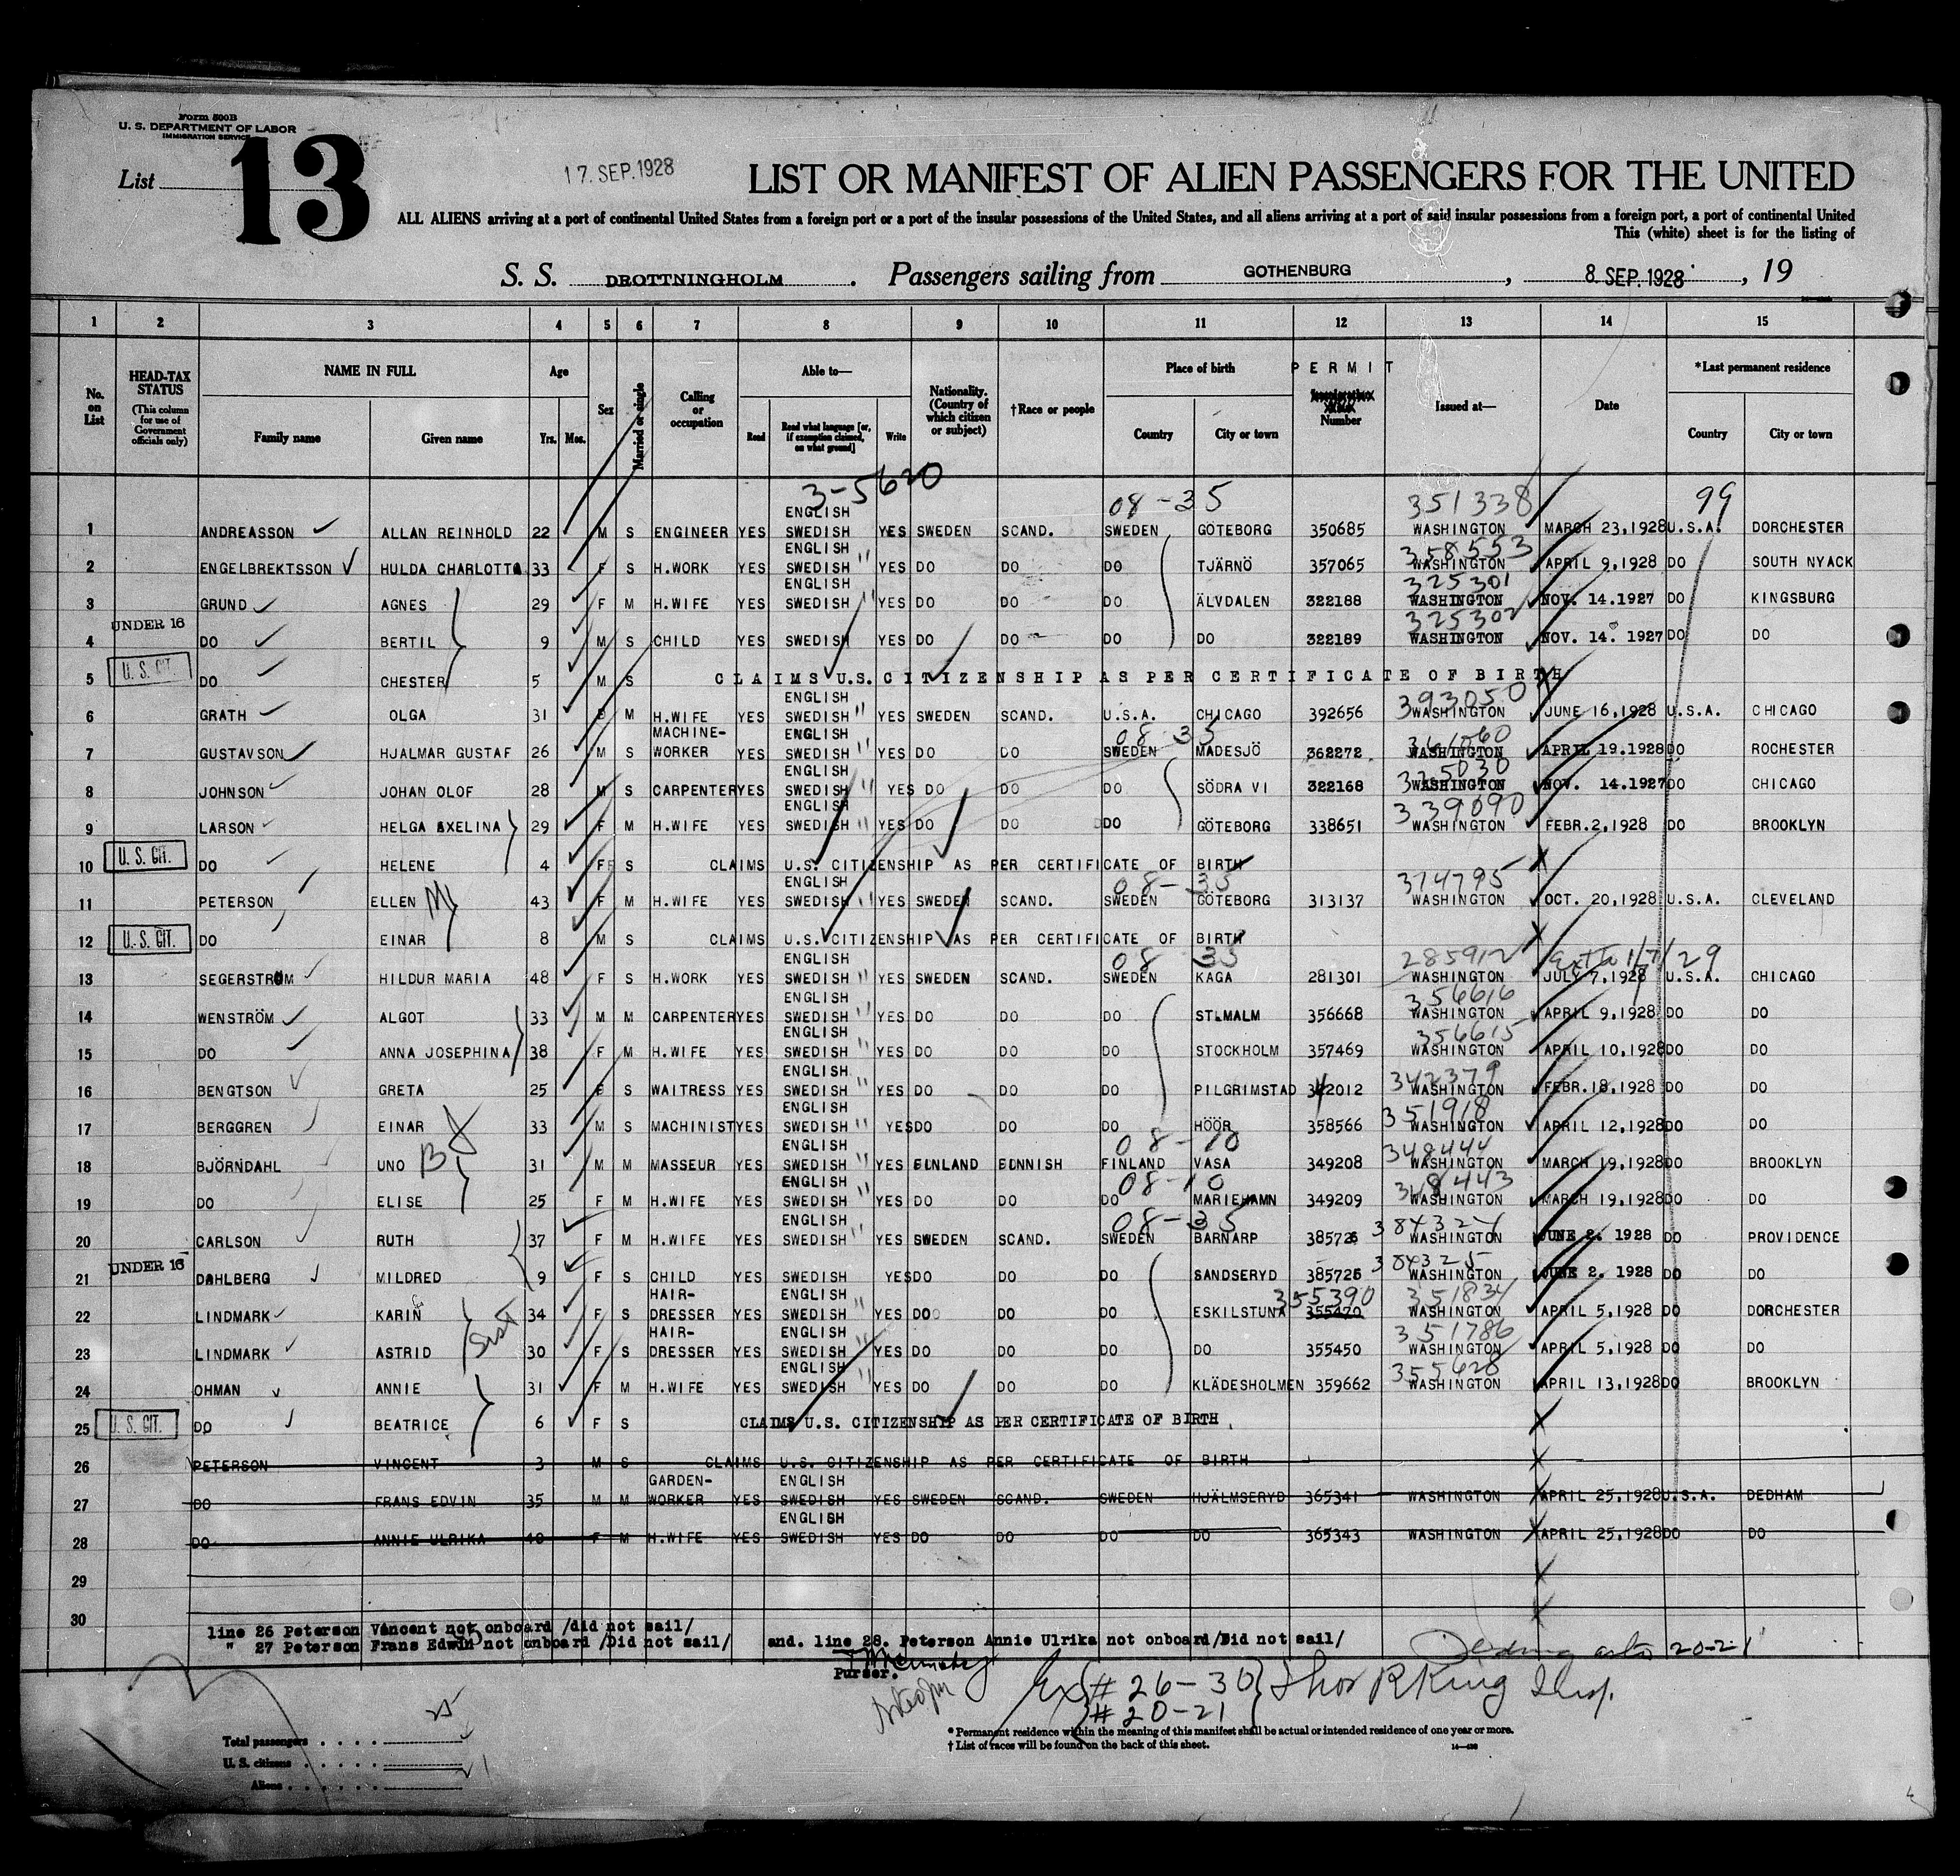 Form 500B
U. S. DEPARTMENT OF LABOR
IMMIGRATION SERVICE
List 13
17. SEP. 1928
LIST OR MANIFEST OF ALIEN PASSENGERS FOR THE UNITED
ALL ALIENS arriving at a port of continental United States from a foreign port or a port of the insular possessions of the United States, and all aliens arriving at a port of said insular possessions from a foreign port, a port of continental United
This (white) sheet is for the listing of
S. S. DROTTNINGHOLM. Passengers sailing from GOTHENBURG, 8 SEP. 1928, 19
1 2 3 4 5 6 7 8 9 10 11 12 13 14 15
No. on List
HEAD-TAX STATUS
(This column for use of Government officials only)
NAME IN FULL
Family name Given name
Age
Yrs. Mos.
Sex
Married or single
Calling or occupation
Able to—
Read Read what language [or, if exemption claimed, on what ground] Write
Nationality. (Country of which citizen or subject)
†Race or people
Place of birth
Country City or town
PERMIT
Number
Issued at—
Date
*Last permanent residence
Country City or town
3-5620 08-35 351338 99
1 ANDREASSON ALLAN REINHOLD 22 M S ENGINEER YES ENGLISH SWEDISH YES SWEDEN SCAND. SWEDEN GÖTEBORG 350685 WASHINGTON MARCH 23,1928 U.S.A. DORCHESTER
358553
2 ENGELBREKTSSON HULDA CHARLOTTA 33 F S H.WORK YES ENGLISH SWEDISH " YES DO DO DO TJÄRNÖ 357065 WASHINGTON APRIL 9,1928 DO SOUTH NYACK
325301
3 GRUND AGNES 29 F M H.WIFE YES ENGLISH SWEDISH " YES DO DO DO ÄLVDALEN 322188 WASHINGTON NOV. 14.1927 DO KINGSBURG
325302
4 UNDER 16 DO BERTIL 9 M S CHILD YES SWEDISH YES DO DO DO DO 322189 WASHINGTON NOV. 14. 1927 DO DO
5 U. S. CIT. DO CHESTER 5 M S CLAIMS U.S. CITIZENSHIP AS PER CERTIFICATE OF BIRTH
393050
6 GRATH OLGA 31 M H.WIFE YES ENGLISH SWEDISH " YES SWEDEN SCAND. U.S.A. CHICAGO 392656 WASHINGTON JUNE 16,1928 U.S.A. CHICAGO
08-35
7 GUSTAVSON HJALMAR GUSTAF 26 M S MACHINE-WORKER YES ENGLISH SWEDISH " YES DO DO SWEDEN MADESJÖ 362272 WASHINGTON APRIL 19.1928 DO ROCHESTER
325030
8 JOHNSON JOHAN OLOF 28 M S CARPENTER YES ENGLISH SWEDISH " YES DO DO DO SÖDRA VI 322168 WASHINGTON NOV. 14.1927 DO CHICAGO
339090
9 LARSON HELGA AXELINA 29 F M H.WIFE YES ENGLISH SWEDISH " YES DO DO DO GÖTEBORG 338651 WASHINGTON FEBR.2,1928 DO BROOKLYN
10 U. S. CIT. DO HELENE 4 F S CLAIMS U.S. CITIZENSHIP AS PER CERTIFICATE OF BIRTH
08-35 314795
11 PETERSON ELLEN M 43 F M H.WIFE YES ENGLISH SWEDISH " YES SWEDEN SCAND. SWEDEN GÖTEBORG 313137 WASHINGTON OCT. 20,1928 U.S.A. CLEVELAND
12 U. S. CIT. DO EINAR 8 M S CLAIMS U.S. CITIZENSHIP AS PER CERTIFICATE OF BIRTH
08 35 285912 Ext to 1/7/29
13 SEGERSTROM HILDUR MARIA 48 F S H.WORK YES ENGLISH SWEDISH " YES SWEDEN SCAND. SWEDEN KAGA 281301 WASHINGTON JULY 7,1928 U.S.A. CHICAGO
356616
14 WENSTRÖM ALGOT 33 M M CARPENTER YES ENGLISH SWEDISH " YES DO DO DO ST.MALM 356668 WASHINGTON APRIL 9,1928 DO DO
356615
15 DO ANNA JOSEPHINA 38 F M H.WIFE YES ENGLISH SWEDISH " YES DO DO DO STOCKHOLM 357469 WASHINGTON APRIL 10,1928 DO DO
342379
16 BENGTSON GRETA 25 S WAITRESS YES ENGLISH SWEDISH " YES DO DO DO PILGRIMSTAD 342012 WASHINGTON FEBR.18,1928 DO DO
351918
17 BERGGREN EINAR 33 M S MACHINIST YES ENGLISH SWEDISH " YES DO DO DO HÖÖR 358566 WASHINGTON APRIL 12,1928 DO DO
08-10 348444
18 BJÖRNDAHL UNO B 31 M M MASSEUR YES ENGLISH SWEDISH " YES FINLAND FINNISH FINLAND VASA 349208 WASHINGTON MARCH 19,1928 DO BROOKLYN
08-10 348443
19 DO ELISE 25 F M H.WIFE YES ENGLISH SWEDISH " YES DO DO DO MARIEHAMN 349209 WASHINGTON MARCH 19,1928 DO DO
08-35 384324
20 CARLSON RUTH 37 F M H.WIFE YES ENGLISH SWEDISH " YES SWEDEN SCAND. SWEDEN BARNARP 385726 WASHINGTON JUNE 2. 1928 DO PROVIDENCE
384325
21 UNDER 16 DAHLBERG MILDRED 9 F S CHILD YES SWEDISH YES DO DO DO SANDSERYD 385725 WASHINGTON JUNE 2. 1928 DO DO
355390 351834
22 LINDMARK KARIN 34 F S HAIR-DRESSER YES ENGLISH SWEDISH " YES DO DO DO ESKILSTUNA 355470 WASHINGTON APRIL 5,1928 DO DORCHESTER
Sist 351786
23 LINDMARK ASTRID 30 F S HAIR-DRESSER YES ENGLISH SWEDISH " YES DO DO DO DO 355450 WASHINGTON APRIL 5,1928 DO DO
355628
24 OHMAN ANNIE 31 F M H.WIFE YES ENGLISH SWEDISH " YES DO DO DO KLÄDESHOLMEN 359662 WASHINGTON APRIL 13,1928 DO BROOKLYN
25 U. S. CIT. DO BEATRICE 6 F S CLAIMS U.S. CITIZENSHIP AS PER CERTIFICATE OF BIRTH
26 PETERSON VINCENT 3 M S CLAIMS U.S. CITIZENSHIP AS PER CERTIFICATE OF BIRTH
27 DO FRANS EDVIN 35 M M GARDEN-WORKER YES ENGLISH SWEDISH YES SWEDEN SCAND. SWEDEN HJÄLMSERYD 365341 WASHINGTON APRIL 25,1928 U.S.A. DEDHAM
28 DO ANNIE ULRIKA 40 F M H.WIFE YES ENGLISH SWEDISH YES DO DO DO DO 365343 WASHINGTON APRIL 25,1928 DO DO
29
30
line 26 Peterson Vincent not onboard /did not sail/
" 27 Peterson Frans Edwin not onboard /Did not sail/ and. line 28. Peterson Annie Ulrika not onboard/Did not sail/
20-21
Purser.
Ex # 26-30 Thos R King Insp.
# 20-21
* Permanent residence within the meaning of this manifest shall be actual or intended residence of one year or more.
† List of races will be found on the back of this sheet.
Total passengers . . . . 25
U. S. citizens . . . . .
Aliens . . . . . . 21